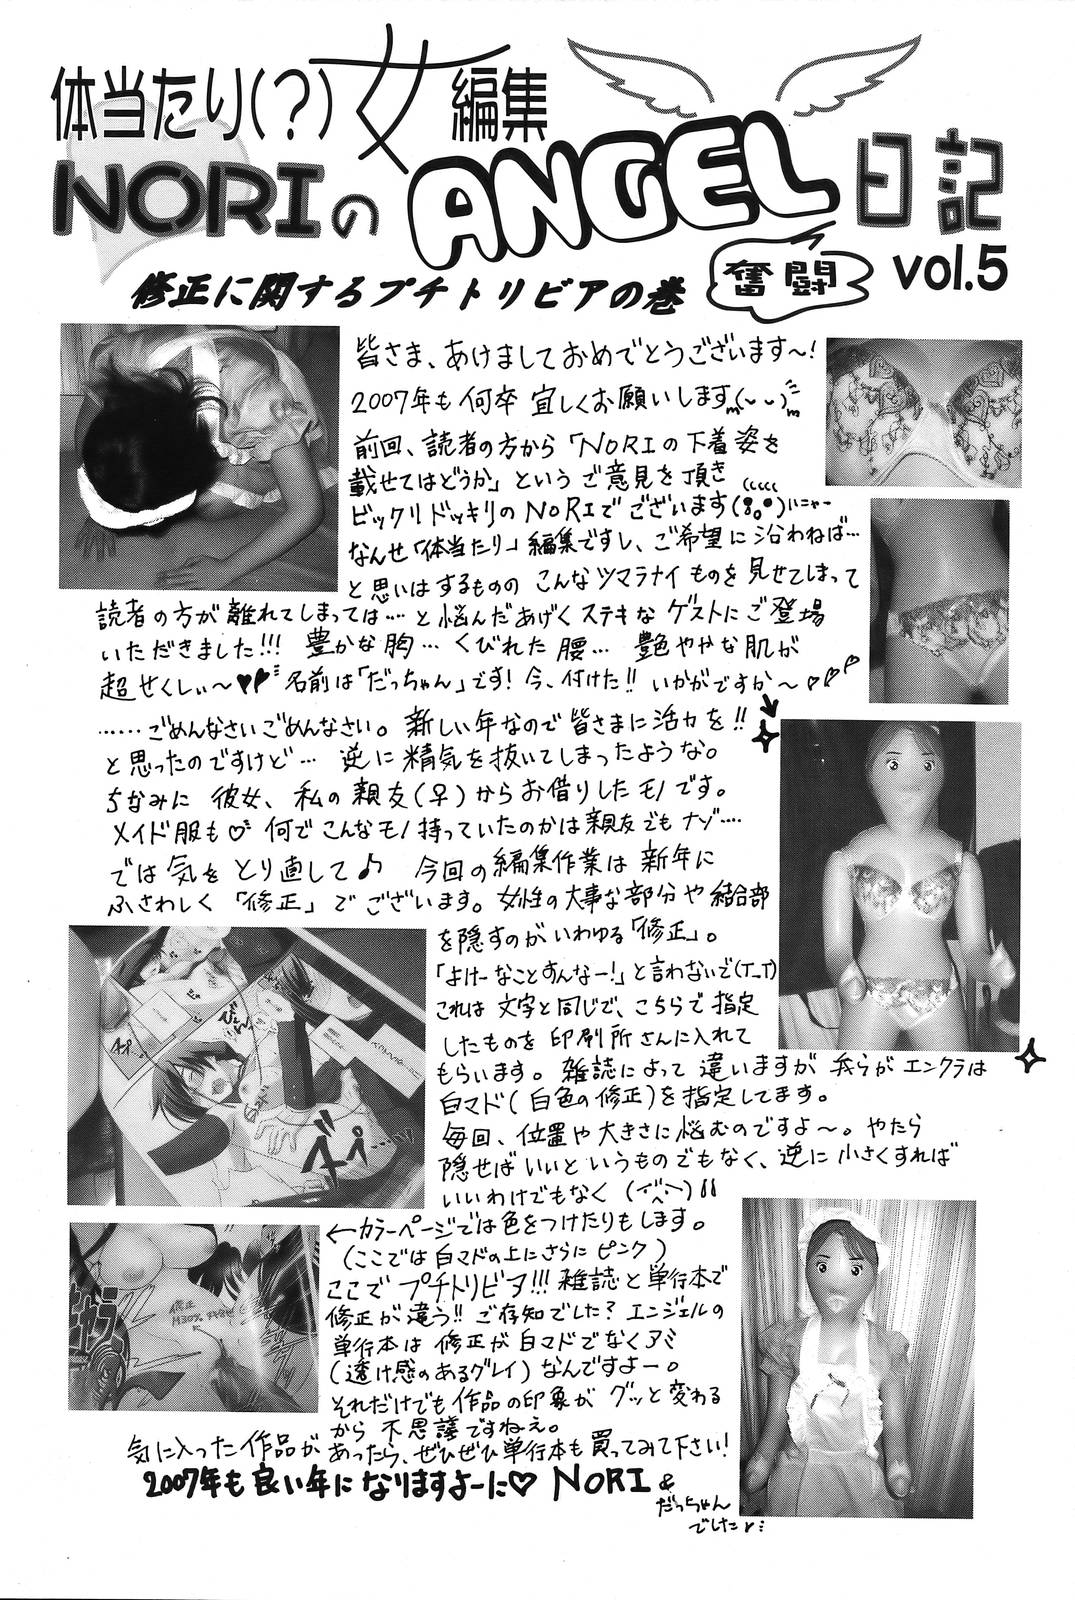 体当たり(?)女編集
NORIのANGEL日記
奮闘
vol.5
修正に関するプチトリビアの巻
皆さま、あけましておめでとうございます〜!
2007年も何卒宜しくお願いしますm(ーー)m
前回、読者の方から「NORIの下着姿を
載せてはどうか」というご意見を頂き
ビックリドッキリのNORIでございます
なんせ「体当たり」編集ですし、ご希望に沿わねば…
と思いはするもののこんなツマラナイものを見せてしまって
読者の方が離れてしまっては……と悩んだあげくステキなゲストにご登場
いただきました!!! 豊かな胸… くびれた腰… 艶やかな肌が
超せくしぃ〜♥♥ 名前は「だっちゃん」です!今、付けた!! いかがですか〜♥♥♥
……ごめんなさいごめんなさい。新しい年なので皆さまに活力を!!
と思ったのですけど… 逆に精気を抜いてしまったような。
ちなみに彼女、私の親友(♀)からお借りしたモノです。
メイド服も♡ 何でこんなモノ持っていたのかは親友でもナゾ……
では気をとり直して♪ 今回の編集作業は新年に
ふさわしく「修正」でございます。女性の大事な部分や結合部
を隠すのがいわゆる「修正」。
「よけーなことすんなー!」と言わないで(T_T)
これは文字と同じで、こちらで指定
したものを印刷所さんに入れて
もらいます。雑誌によって違いますが我らがエンクラは
白マド(白色の修正)を指定してます。
毎回、位置や大きさに悩むのですよ〜。やたら
隠せばいいというものでもなく、逆に小さくすれば
いいわけでもなく
←カラーページでは色をつけたりもします。
(ここでは白マドの上にさらにピンク)
ここでプチトリビア!!! 雑誌と単行本で
修正が違う!! ご存知でした? エンジェルの
単行本は修正が白マドでなくアミ
(透け感のあるグレイ)なんですよー。
それだけでも作品の印象がグッと変わる
から不思議ですねぇ。
気に入った作品があったら、ぜひぜひ単行本も買ってみて下さい!
2007年も良い年になりますよーに♡ NORI &
だっちゃん
でした♪